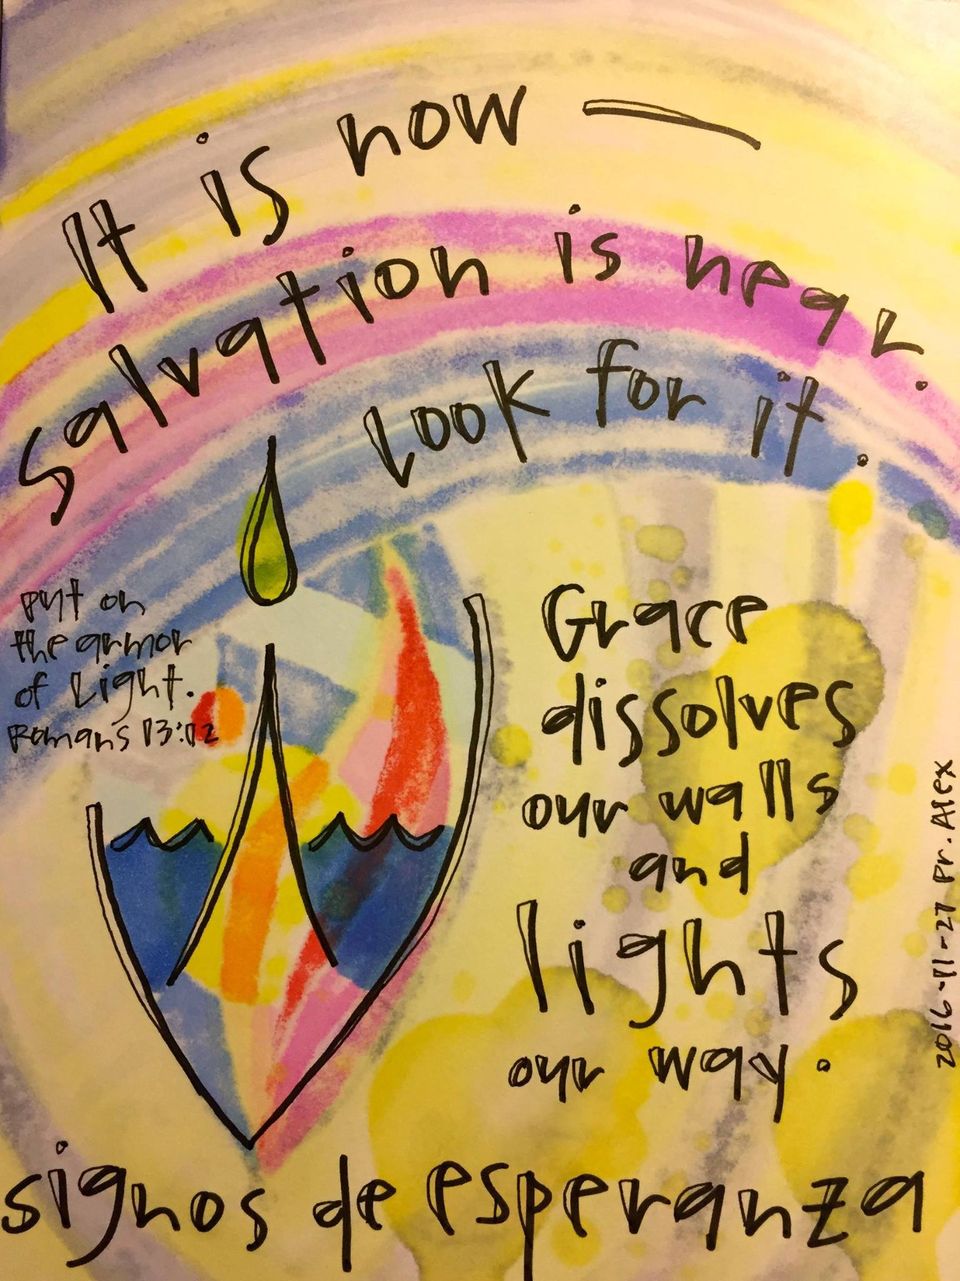 It is now —
Salvation is near.
Look for it.
put on
the armor
of Light.
Romans 13:12
Grace
dissolves
our walls
and
lights
our way.
signos de esperanza
2016-11-27 Pr. Alex